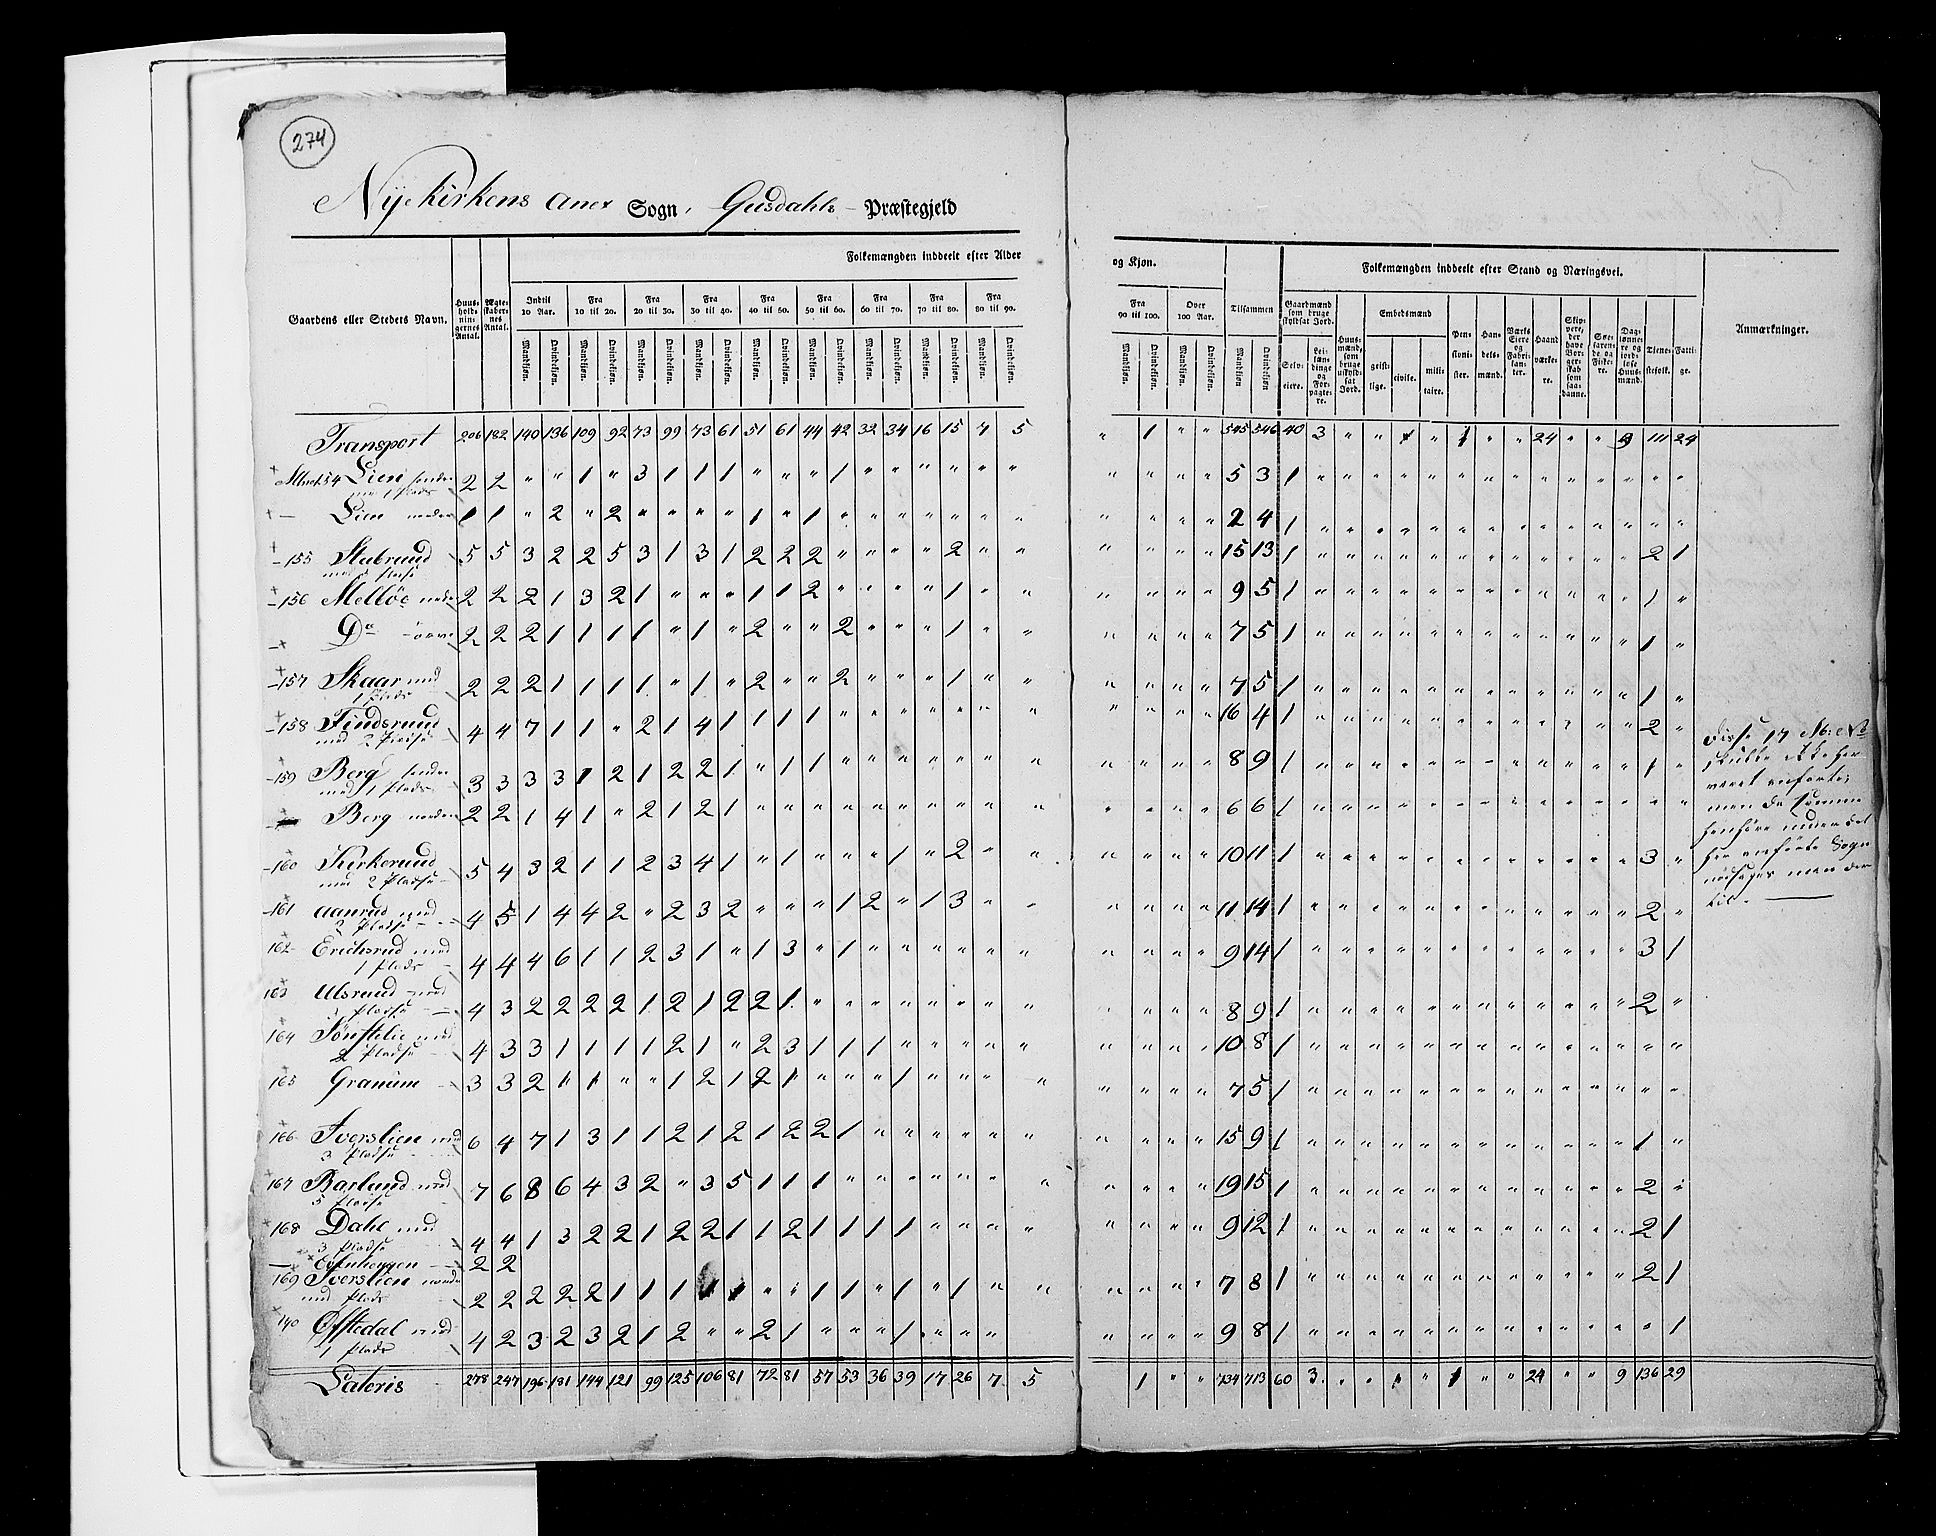 274
Nÿekirkens Anex Sogn, Gusdahls Præstegjeld
Folkemængden inddeelt efter Alder
og Kjøn.
Folkemængden inddeelt efter Stand og Næringsvei.
Gaardens eller Stedets Navn.
Huusholdningernes Antal.
Ægteskabernes Antal.
Indtil 10 Aar.
Fra 10 til 20.
Fra 20 til 30.
Fra 30 til 40.
Fra 40 til 50.
Fra 50 til 60.
Fra 60 til 70.
Fra 70 til 80.
Fra 80 til 90.
Fra 90 til 100.
Over 100 Aar.
Tilsammen
Mandkiøn. Qvindekiøn.
Gaardmænd som bruge skyldsat Jord.
Selveiere.
Leilændinge og Forpagtere.
Huusmænd, som bruge uskyldsat Jord.
Embedsmænd
geistlige. civile. militaire.
Pensionister.
Handelsmænd.
Værks Eiere og Fabrikanter.
Haandværkere.
Skippere, der have Borgerskab som saadanne.
Søefarende og Fiskere.
Daglønnere og jordløse Huusmænd.
Tjenestefolk.
Fattige.
Anmærkninger.
Transport 206 182 140 136 109 92 73 99 73 61 51 61 44 42 32 34 16 15 7 5 " 1 " " 545 546 40 3 " " 1 " 1 " " 24 " " 9 111 24
154 Lien søndre 2 2 " " 1 " 3 1 1 1 " " " 1 " " " " " " " " " " 5 3 1
med 1 Plads
Lien nordre 1 1 " 2 " 2 " " " " 1 " 1 " " " " " " " " " " " 2 4 1
155 Stubrud 5 5 3 2 2 5 3 1 3 1 2 2 2 " " " " 2 " " " " " " 15 13 1 2 1
156 Melløe nedre 2 2 2 1 3 2 1 " " " 1 1 2 " " " " 1 " " " " " " 9 5 1 1 "
Do øvre 2 2 2 1 1 1 1 " 1 " 2 " " 2 " " " 1 " " " " " " 7 5 1 1 "
157 Skaar med 2 2 2 1 1 1 1 " 1 " 2 " " 2 " " " 1 " " " " " " 7 5 1 1 "
1 Plads
158 Findsrud 4 4 7 1 1 " 2 1 4 1 1 1 1 " " " " " " " " " " " 16 4 1 2 "
med 2 Pladse
159 Berg søndre 3 3 3 3 1 2 1 2 2 1 " 1 1 " " " " " " " " " " " 8 9 1 1 "
med 1 Plads
Berg nordre 2 2 1 4 1 " 2 1 2 1 " " " " " " " " " " " " " " 6 6 1 " "
160 Kirkerud 5 4 3 2 1 1 2 3 4 1 " 1 " " " 1 " 2 " " " " " " 10 11 1 3 "
med 2 Pladse
161 Aanrud med 4 5 1 4 4 2 " 2 3 2 " " " 1 2 " 1 3 " " " " " " 11 14 1 2 "
2 Pladse
162 Erichsrud med 4 4 4 6 1 1 2 3 1 " 1 3 " 1 " " " " " " " " " " 9 14 1 3 1
1 Plads
163 Ulsrud med 4 3 2 2 2 2 1 2 1 2 2 1 " " " " " " " " " " " " 8 9 1 2 "
Pladse
164 Tønstelie med 4 3 3 1 1 1 1 2 1 " 2 3 1 1 1 " " " " " " " " " 10 8 1 " "
2 Pladse
165 Granum 3 3 2 " 1 " " 1 2 1 2 1 " " " 1 " " " " " " " " 7 5 1 " "
166 Iverslien med 6 4 7 1 3 1 1 2 1 2 1 2 2 1 " " " " " " " " " " 15 9 1 1 "
3 Pladse
167 Barlund med 7 6 8 6 4 3 2 " 3 5 1 1 1 " " " " " " " " " " " 19 15 1 2 "
5 Pladse
168 Dahl med 4 4 1 3 2 2 1 2 2 1 1 2 1 1 1 1 " " " " " " " " 9 12 1 2 1
3 Pladse
2 2
169 Iverslien nordre 2 2 2 2 2 1 1 1 1 1 " " 1 1 " 1 " 1 " " " " " " 7 8 1 2 1
med Plads
140 Øftedal med 4 2 3 2 3 2 1 2 " " 2 1 " " " 1 " " " " " " " " 9 8 1 " 1
1 Plads
Lateris 278 247 196 181 144 121 99 125 106 81 72 81 57 53 36 39 17 26 7 5 1 " " 734 713 60 3 " " 1 " 1 " " 24 " " 9 136 29
Disse 17 M: No
skulde ikke her
været anførte;
men da samme
henhøre under det
her anførte Sogn
nødsages man der
til.